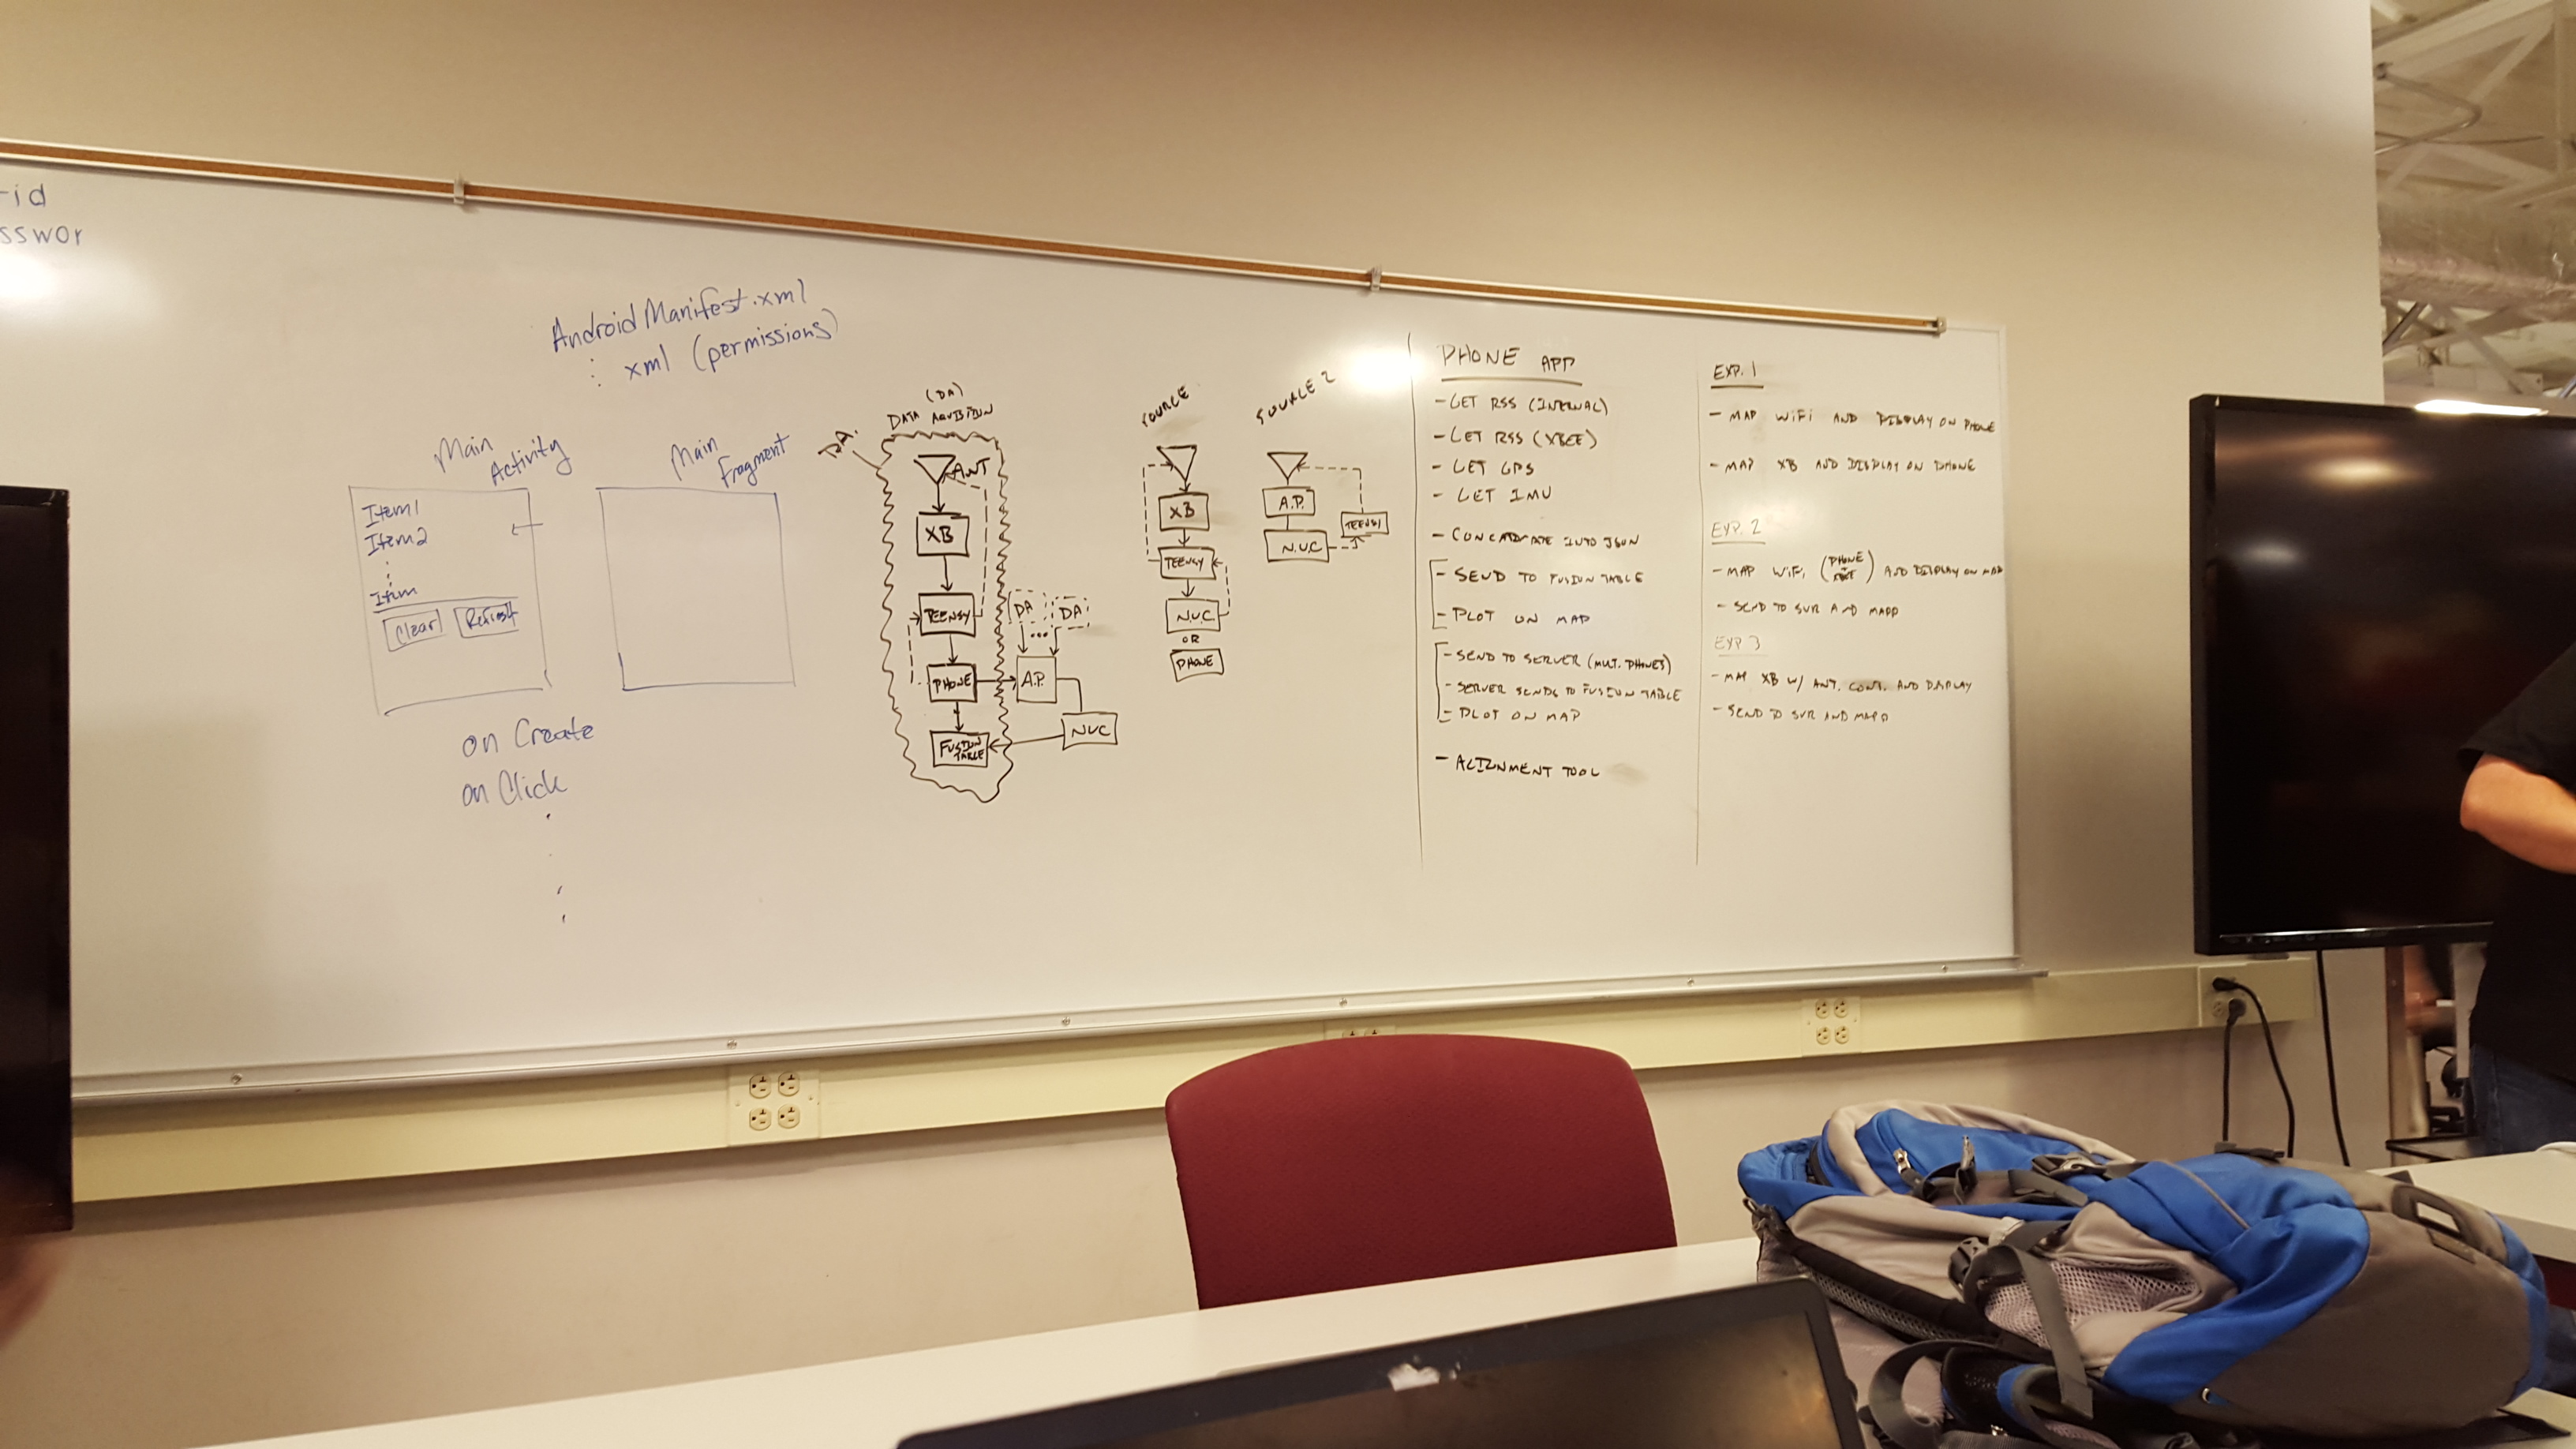 -id
sswor
AndroidManifest.xml
xml (permissions)
Main
Activity
Item1
Item2
Item
Clear
Refresh
on Create
on Click
Main
Fragment
(DA)
DATA AQUISITION
ANT
XB
TEENSY
PHONE
FUSION
TABLE
DA
...
DA
A.P.
NUC
SOURCE
XB
TEENSY
N.U.C
OR
PHONE
SOURCE 2
A.P.
N.U.C
TEENSY
PHONE APP
- GET RSS (INTERNAL)
- GET RSS (XBEE)
- GET GPS
- GET IMU
- CONCATENATE INTO JSON
- SEND TO FUSION TABLE
- PLOT ON MAP
- SEND TO SERVER (MULT. PHONES)
- SERVER SENDS TO FUSION TABLE
- PLOT ON MAP
- ALIGNMENT TOOL
EXP. 1
- MAP WiFi AND DISPLAY ON PHONE
- MAP XB AND DISPLAY ON PHONE
EXP. 2
- MAP WiFi (PHONE
) AND DISPLAY ON MAP
- SEND TO SVR AND MAPP
EXP 3
- MAP XB W/ ANT. CONT. AND DISPLAY
- SEND TO SVR AND MAPP